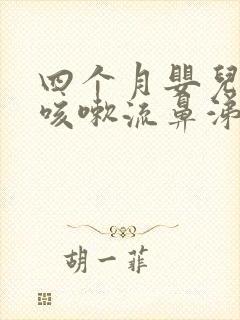 四个月嬰兒
咳嗽流鼻涕
胡一菲